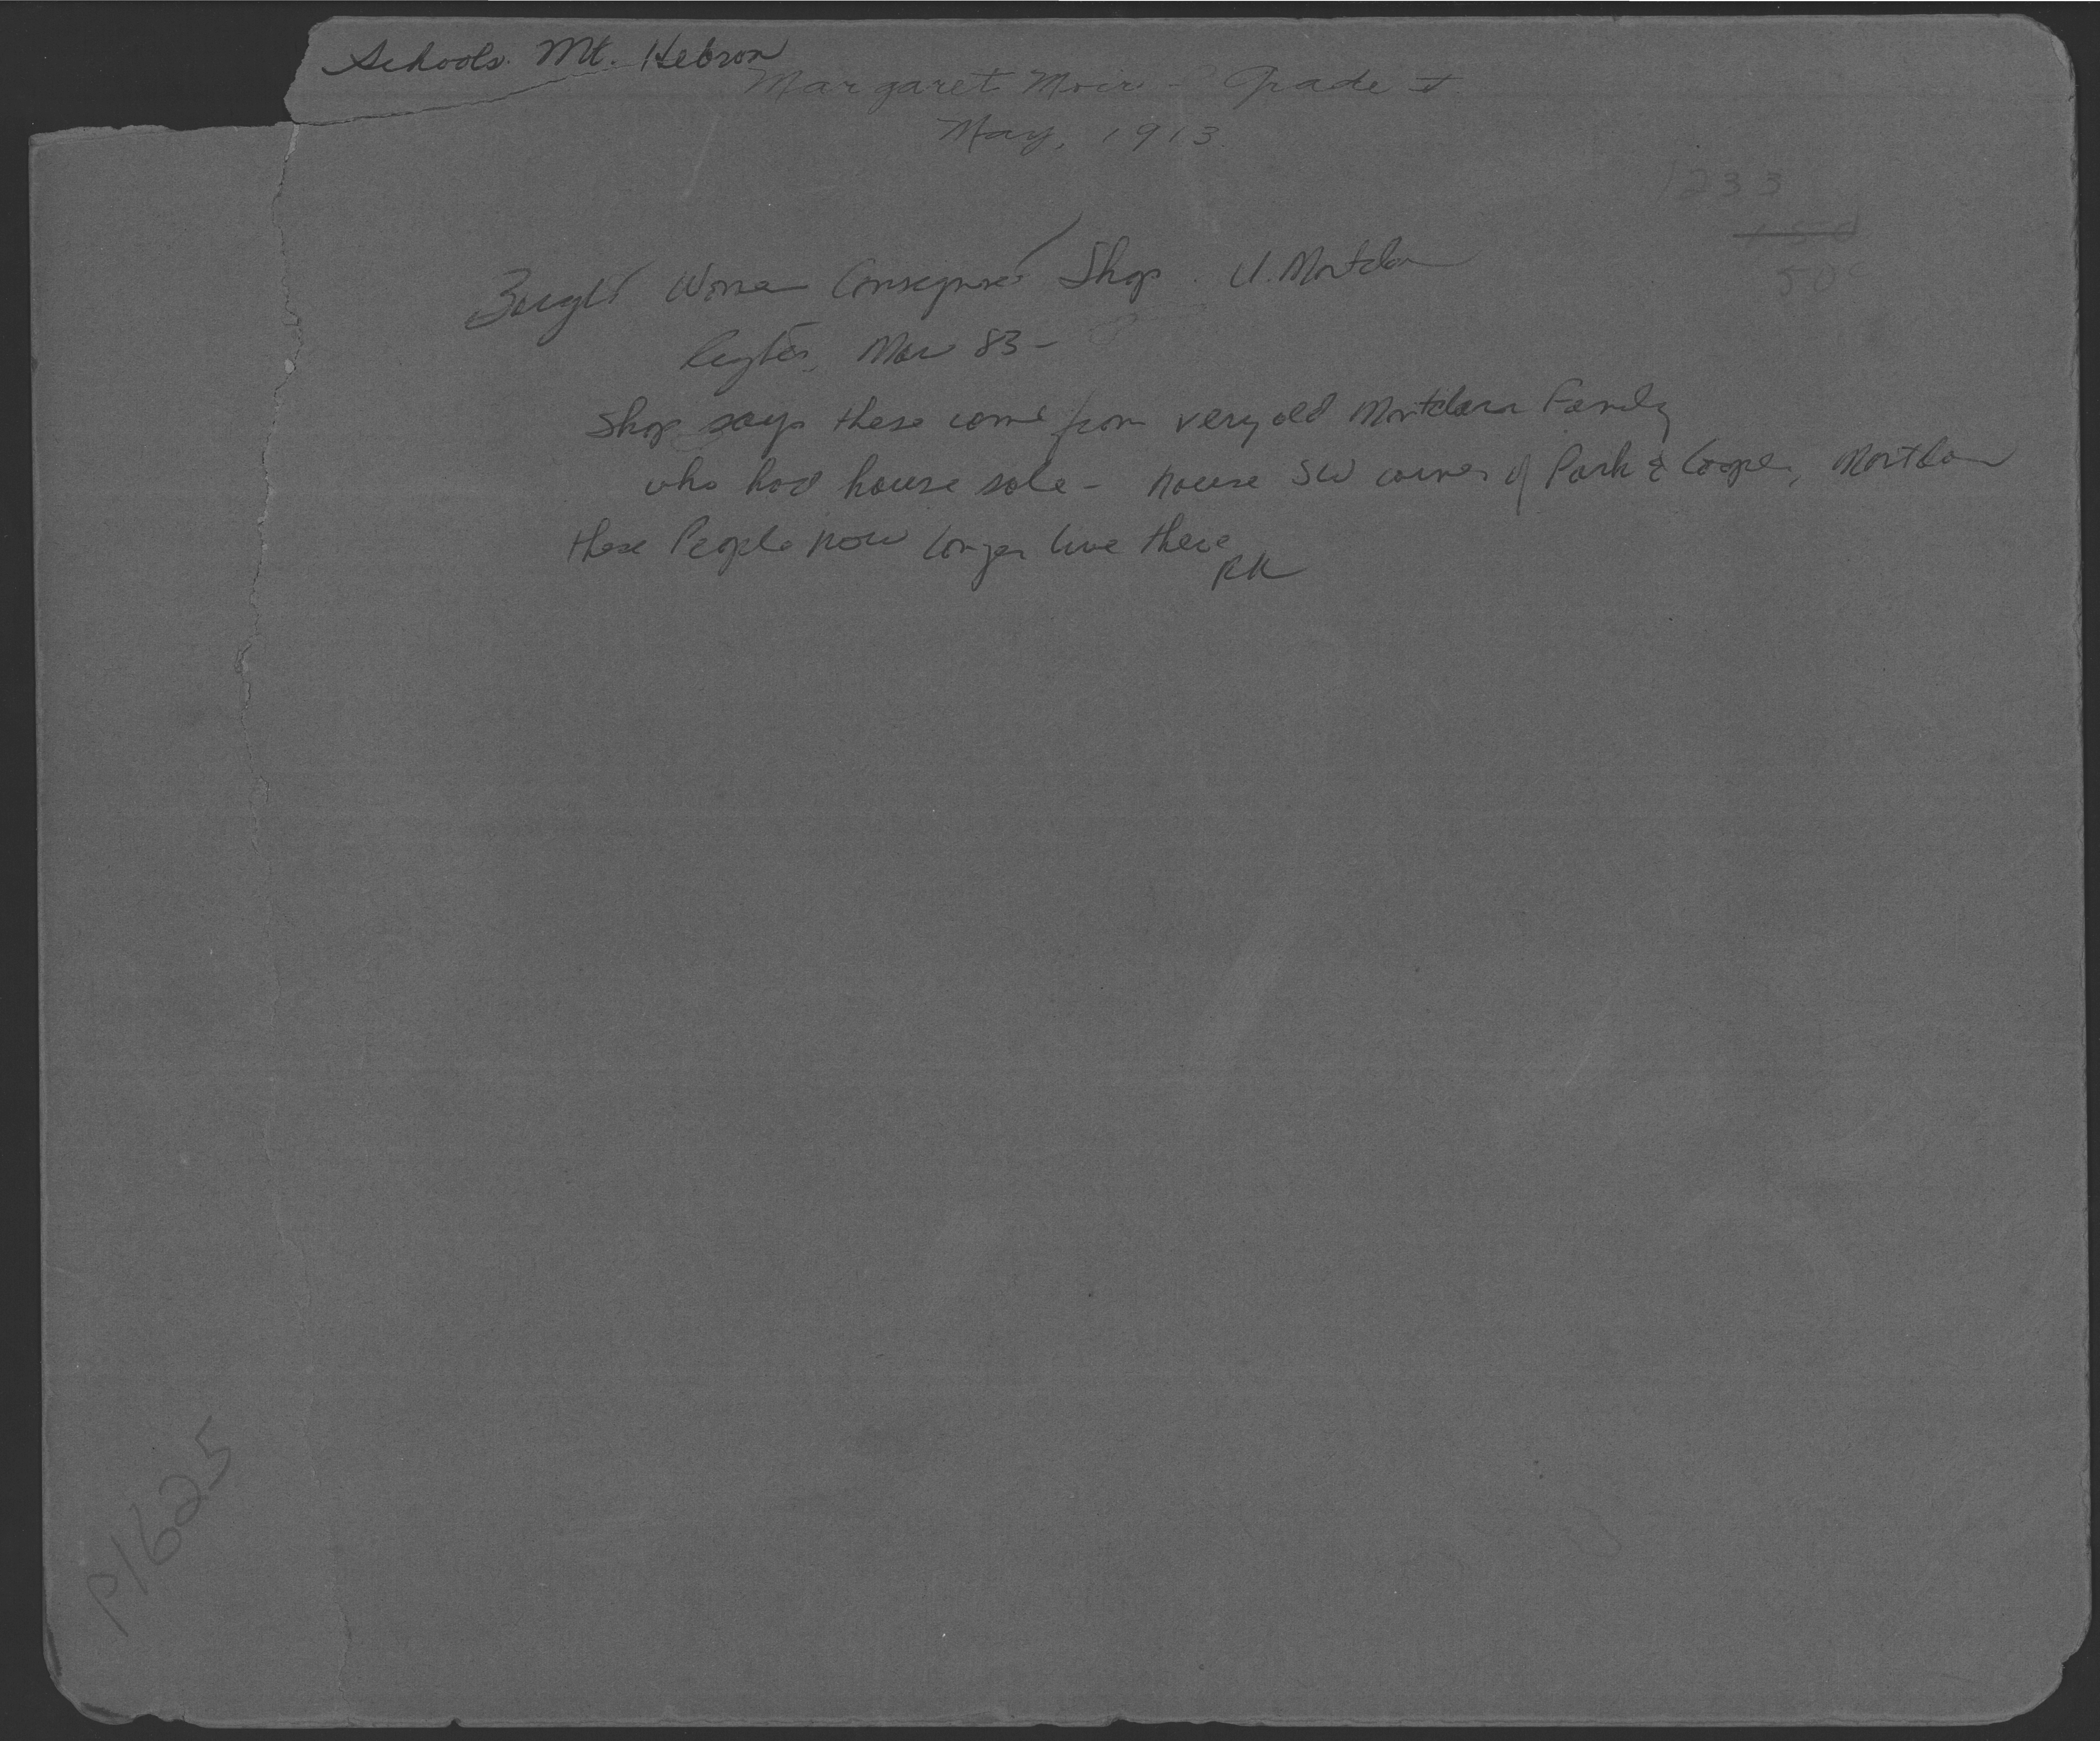 Schools. Mt. Hebron
Margaret Moir - Grade I
May, 1913
1233
50¢
Bought Woman Consignment Shop. U. Montclair
Mar 83 -
Shop says these come from very old Montclair Family
who had house sale - house SW corner of Park & Cooper, Montclair
these People now longer live there
RK
P1625